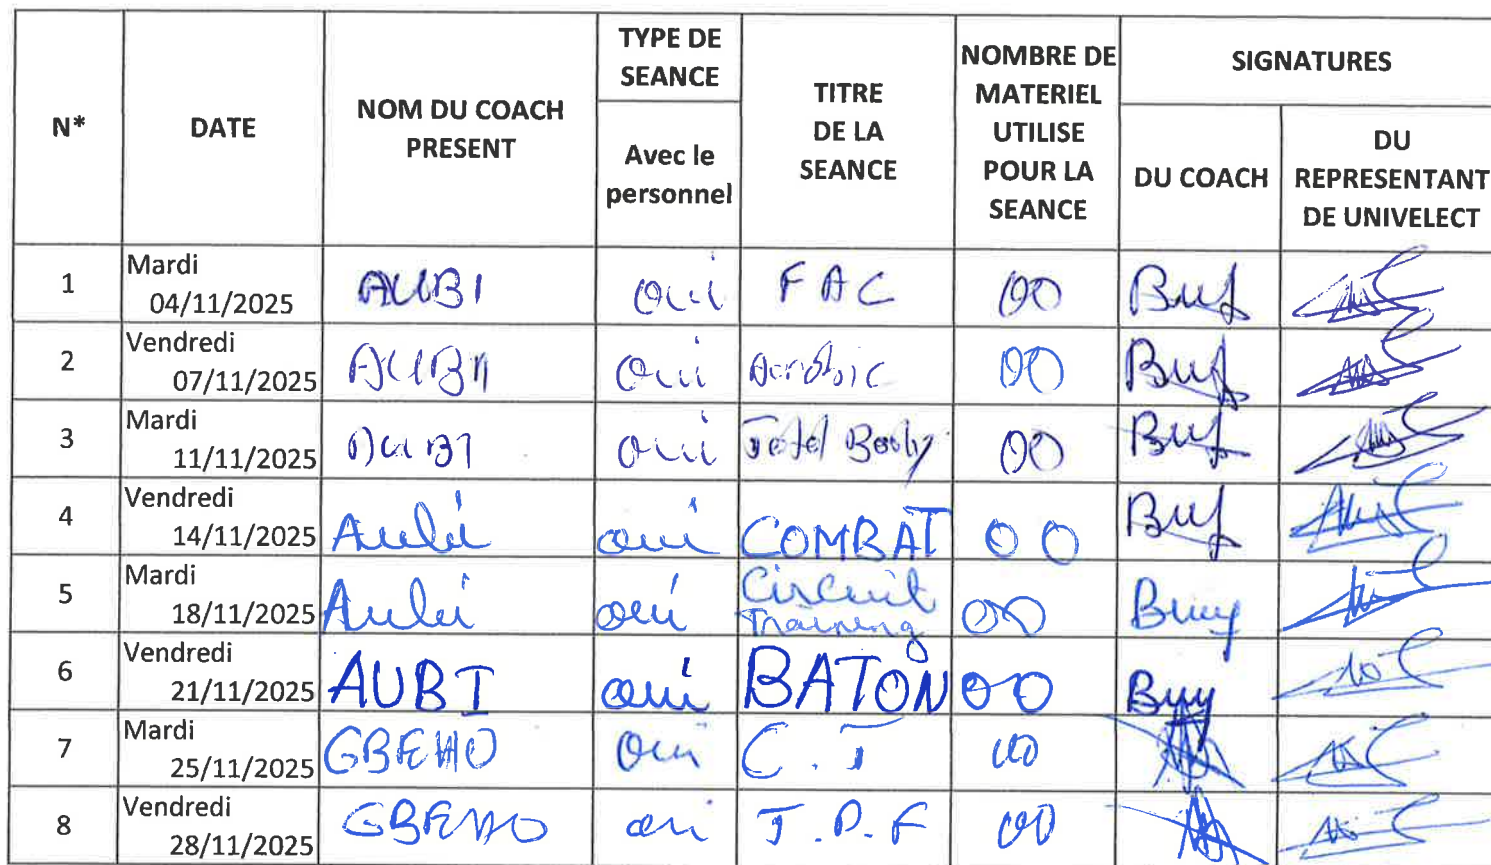 N* DATE NOM DU COACH PRESENT TYPE DE SEANCE TITRE DE LA SEANCE NOMBRE DE MATERIEL UTILISE POUR LA SEANCE SIGNATURES
Avec le personnel DU COACH DU REPRESENTANT DE UNIVELECT
1 Mardi 04/11/2025 AUBI oui FAC 00
2 Vendredi 07/11/2025 AUBI oui Aerobic 00
3 Mardi 11/11/2025 AUBI oui Total Body 00
4 Vendredi 14/11/2025 Aubi oui COMBAT 00
5 Mardi 18/11/2025 Aubi oui Circuit Training 00
6 Vendredi 21/11/2025 AUBI oui BATON 00
7 Mardi 25/11/2025 oui C.T 00
8 Vendredi 28/11/2025 oui 00